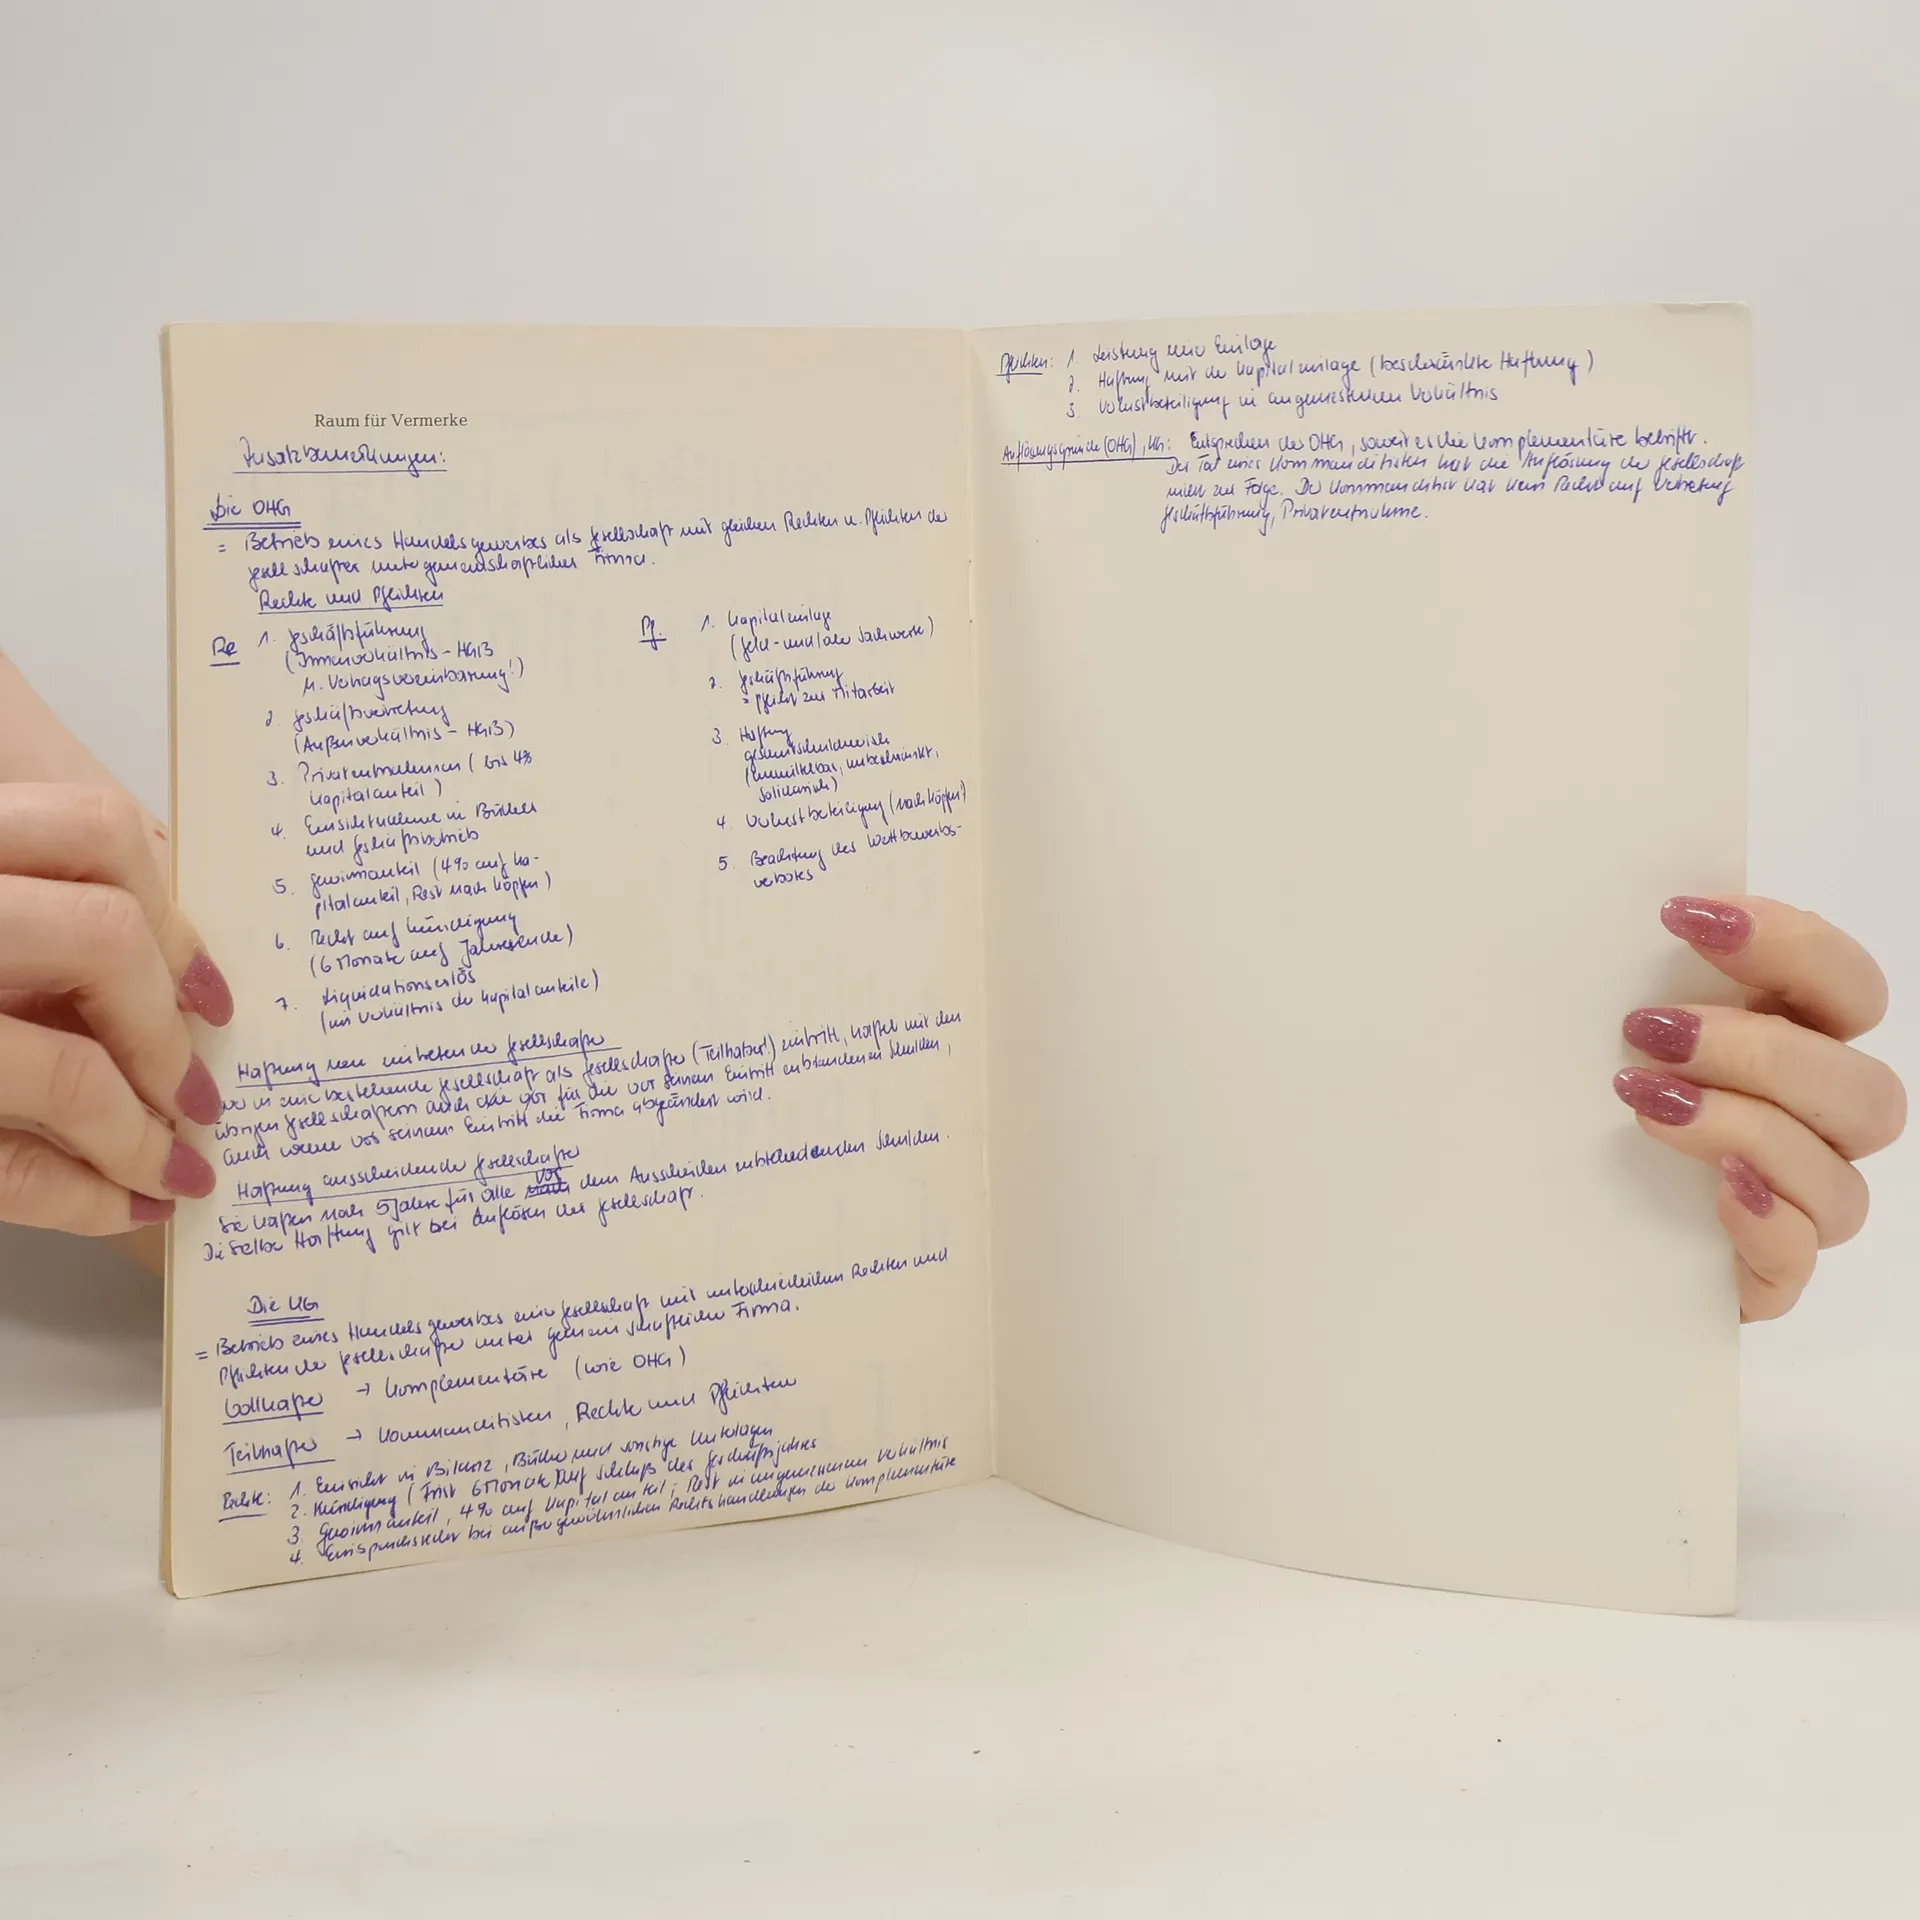 Raum für Vermerke
Zusatzbemerkungen:
Die OHG
= Betrieb eines Handelsgewerbes als Gesellschaft mit gleichen Rechten u. Pflichten der
Gesellschafter unter gemeinschaftlicher Firma.
Rechte und Pflichten
Re 1. Geschäftsführung
(Innenverhältnis - HGB
u. Vertragsvereinbarung!)
2. Geschäftsvertretung
(Außenverhältnis - HGB)
3. Privatentnahmen (bis 4%
Kapitalanteil)
4. Einsichtnahme in Bücher
und Geschäftsbetrieb
5. Gewinnanteil (4% auf Ka-
pitalanteil, Rest nach Köpfen)
6. Recht auf Kündigung
(6 Monate auf Jahresende)
7. Liquidationserlös
(im Verhältnis der Kapitalanteile)
Pf. 1. Kapitaleinlage
(Geld- und/oder Sachwerte)
2. Geschäftsführung
= Pflicht zur Mitarbeit
3. Haftung
gesamtschuldnerisch
(unmittelbar, unbeschränkt,
solidarisch)
4. Verlustbeteiligung (nach Köpfen!)
5. Beachtung des Wettbewerbs-
verbotes
Haftung neu eintretender Gesellschafter
Wer in eine bestehende Gesellschaft als Gesellschafter (Teilhaber!) eintritt, haftet mit den
übrigen Gesellschaftern auch für die vor seinem Eintritt entstandenen Schulden,
auch wenn vor seinem Eintritt die Firma abgeändert wird.
Haftung ausscheidender Gesellschafter
Sie haften noch 5 Jahre für alle vor dem Ausscheiden entstehendenden Schulden.
Dieselbe Haftung gilt bei Auflösen der Gesellschaft.
Die KG
= Betrieb eines Handelsgewerbes einer Gesellschaft mit unterschiedlichen Rechten und
Pflichten der Gesellschafter unter gemeinschaftlicher Firma.
Vollhafter → Komplementäre (wie OHG)
Teilhafter → Kommanditisten, Rechte und Pflichten
Rechte: 1. Einsicht in Bilanz, Bücher und sonstige Unterlagen
2. Kündigung (Frist 6 Monate auf Schluß des Geschäftsjahres
3. Gewinnanteil, 4% auf Kapitalanteil, Rest in angemessenem Verhältnis
4. Einspruchsrecht bei außergewöhnlichen Rechtshandlungen der Komplementäre
Pflichten: 1. Leistung einer Einlage
2. Haftung mit der Kapitaleinlage (beschränkte Haftung)
3. Verlustbeteiligung in angemessenem Verhältnis
Auflösungsgründe (OHG), KG: Entsprechen der OHG, soweit es die Komplementäre betrifft.
Der Tod eines Kommanditisten hat die Auflösung der Gesellschaft
nicht zur Folge. Der Kommanditist hat kein Recht auf Vertretung
Geschäftsführung, Privatentnahme.